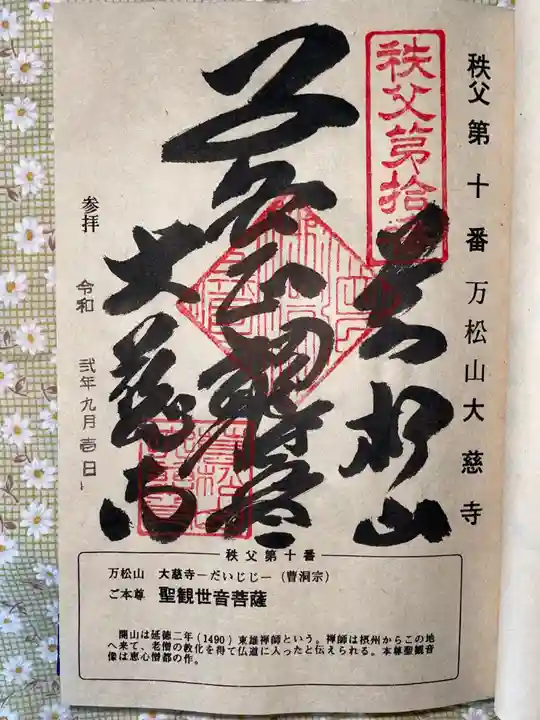 秩父第十番万松山大慈寺
秩父第拾番
万松山
大慈寺
参拝
令和 弐年九月壱日
秩父第十番
万松山 大慈寺−だいじじ−(曹洞宗)
ご本尊 聖観世音菩薩
開山は延徳二年(1490)東雄禅師という。禅師は摂州からこの地
へ来て、老僧の教化を得て仏道に入ったと伝えられる。本尊聖観音
像は恵心僧都の作。